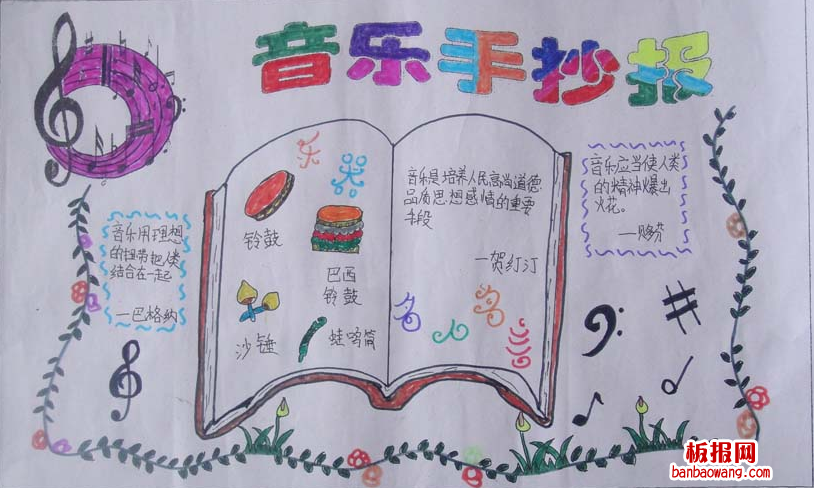 音乐手抄报
音乐用理想
的纽带把人类
结合在一起
—巴格纳
乐器
铃鼓
巴西
铃鼓
沙锤
蛙鸣筒
音乐是培养人民高尚道德
品质思想感情的重要
手段
—贺绿汀
名人名言
音乐应当使人类
的精神爆出
火花。
—贝多芬
板报网
banbaowang.com